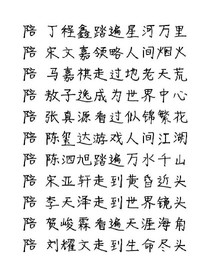 陪 丁程鑫踏遍星河万里
陪 宋文嘉领略人间烟火
陪 马嘉祺走过地老天荒
陪 敖子逸成为世界中心
陪 张真源看过似锦繁花
陪 陈玺达游戏人间江湖
陪 陈泗旭踏遍万水千山
陪 宋亚轩走到黄昏近头
陪 李天泽走到世界尽头
陪 贺峻霖看遍天涯海角
陪 刘耀文走到生命尽头